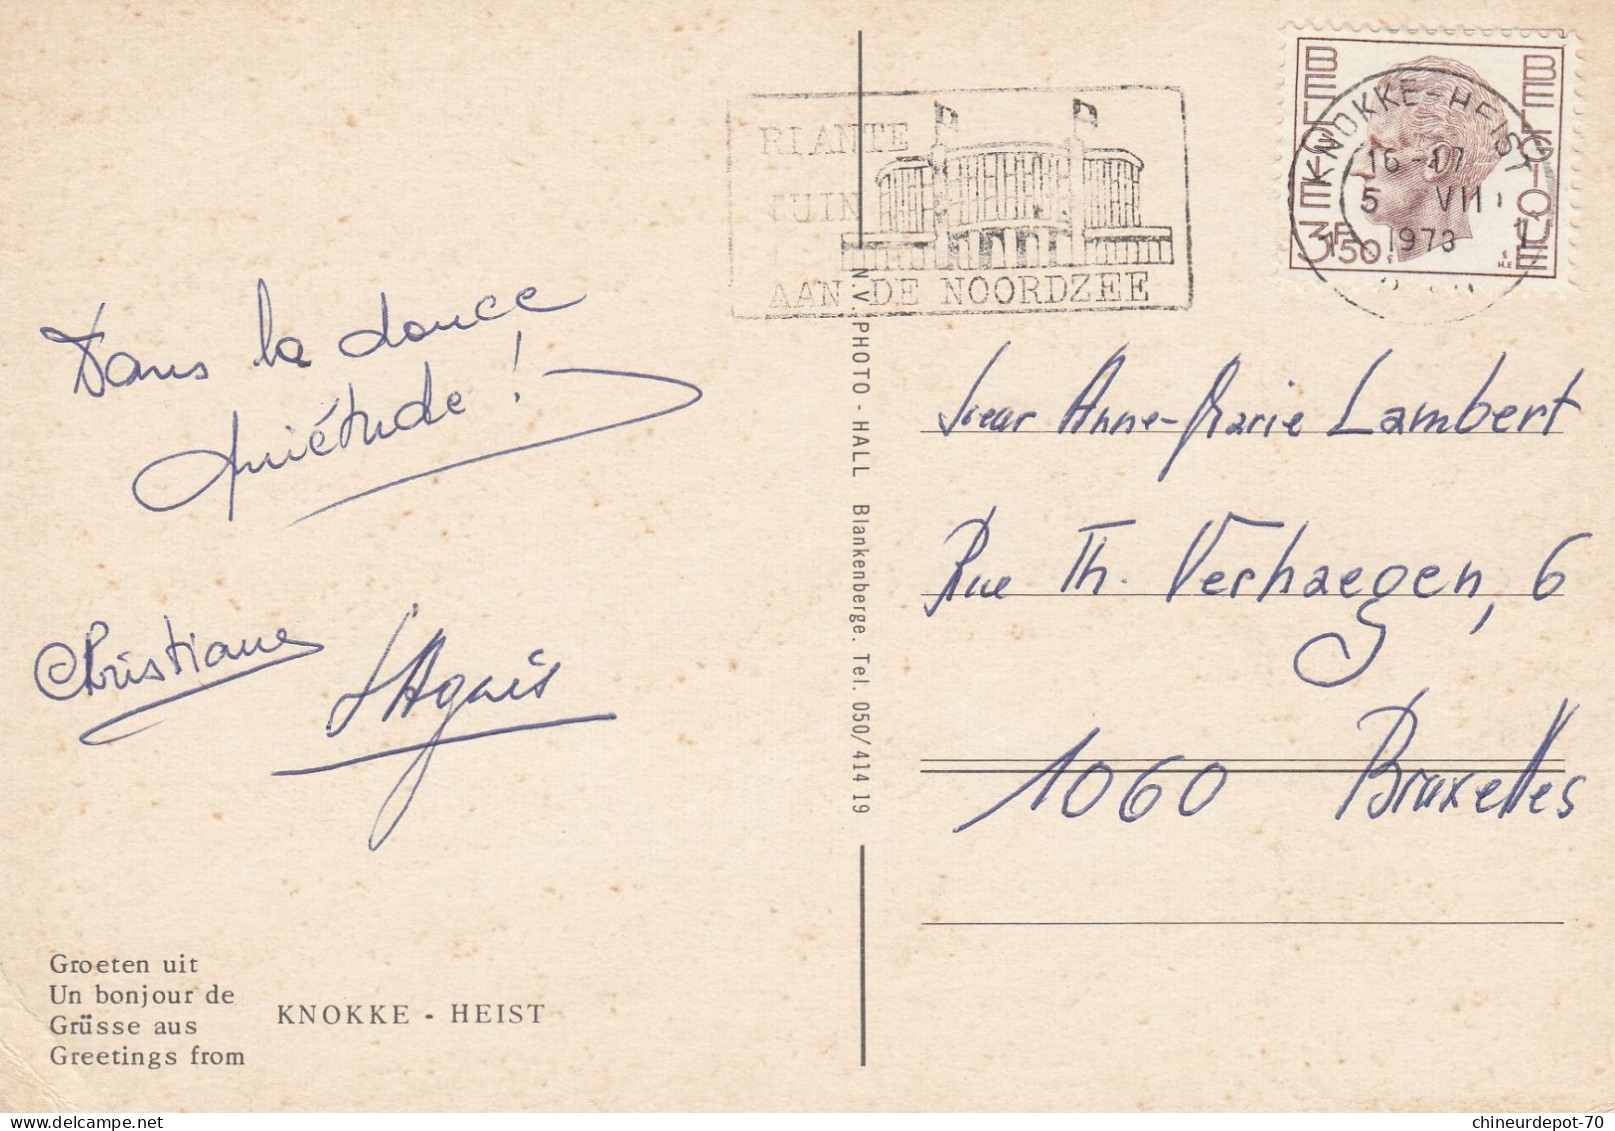 RIANTE
TUIN
AAN DE NOORDZEE
BELGIË
BELGIQUE
3F50
KNOKKE-HEIST
16-17
5 VII
1973
Dans la douce
quiétude !
Christiane
Soeur Anne-Marie Lambert
Rue Th. Verhaegen, 6
1060 Bruxelles
N.V. PHOTO - HALL Blankenberge. Tel. 050/414 19
Groeten uit
Un bonjour de
Grüsse aus
Greetings from
KNOKKE - HEIST
chineurdepot-70